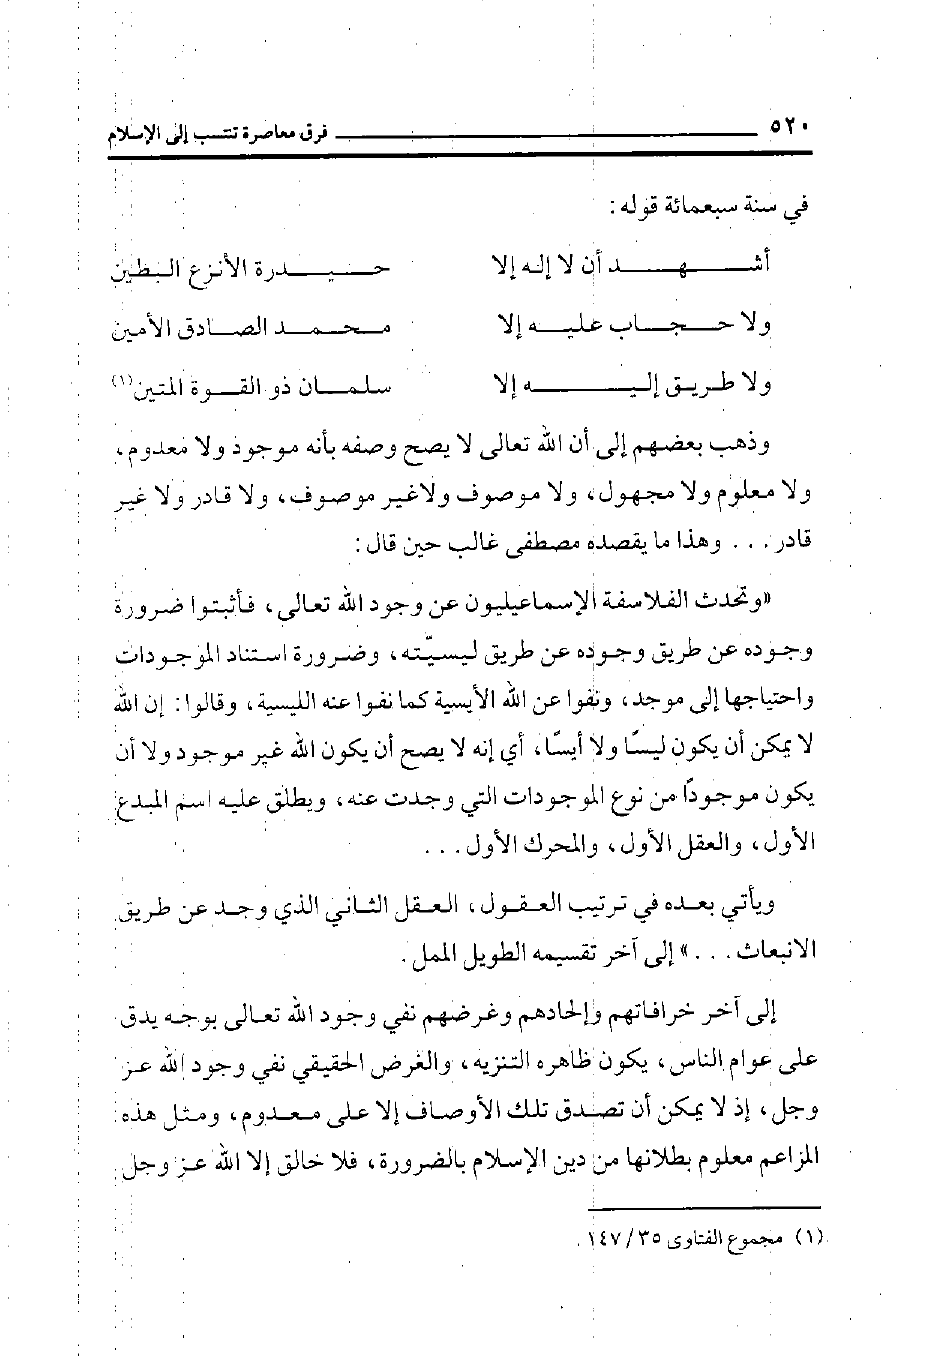 ٥٢٠ فرق معاصرة تنتسب إلى الإسلام
في سنة سبعمائة قوله :
أشهد أن لا إله إلا حيدرة الأنزع البطين
ولا حجاب عليه إلا محمد الصادق الأمين
ولا طريق إليه إلا سلمان ذو القوة المتين(١)
وذهب بعضهم إلى أن الله تعالى لا يصح وصفه بأنه موجود ولا معدوم،
ولا معلوم ولا مجهول، ولا موصوف ولاغير موصوف، ولا قادر ولا غير
قادر . . . وهذا ما يقصده مصطفى غالب حين قال :
«وتحدث الفلاسفة الإسماعيليون عن وجود الله تعالى، فأثبتوا ضرورة
وجوده عن طريق وجوده عن طريق ليسيّته، وضرورة استناد الموجودات
واحتياجها إلى موجد، ونفوا عن الله الأيسية كما نفوا عنه الليسية، وقالوا: إن الله
لا يمكن أن يكون ليسًا ولا أيسًا، أي إنه لا يصح أن يكون الله غير موجود ولا أن
يكون موجودًا من نوع الموجودات التي وجدت عنه، ويطلق عليه اسم المبدع
الأول، والعقل الأول، والمحرك الأول . . .
ويأتي بعده في ترتيب العقول، العقل الثاني الذي وجد عن طريق
الانبعاث . . . » إلى آخر تقسيمه الطويل الممل .
إلى آخر خرافاتهم وإلحادهم وغرضهم نفي وجود الله تعالى بوجه يدق
على عوام الناس، يكون ظاهره التنزيه، والغرض الحقيقي نفي وجود الله عز
وجل، إذ لا يمكن أن تصدق تلك الأوصاف إلا على معدوم، ومثل هذه
المزاعم معلوم بطلانها من دين الإسلام بالضرورة، فلا خالق إلا الله عز وجل
(١) مجموع الفتاوى ٣٥/ ١٤٧ .